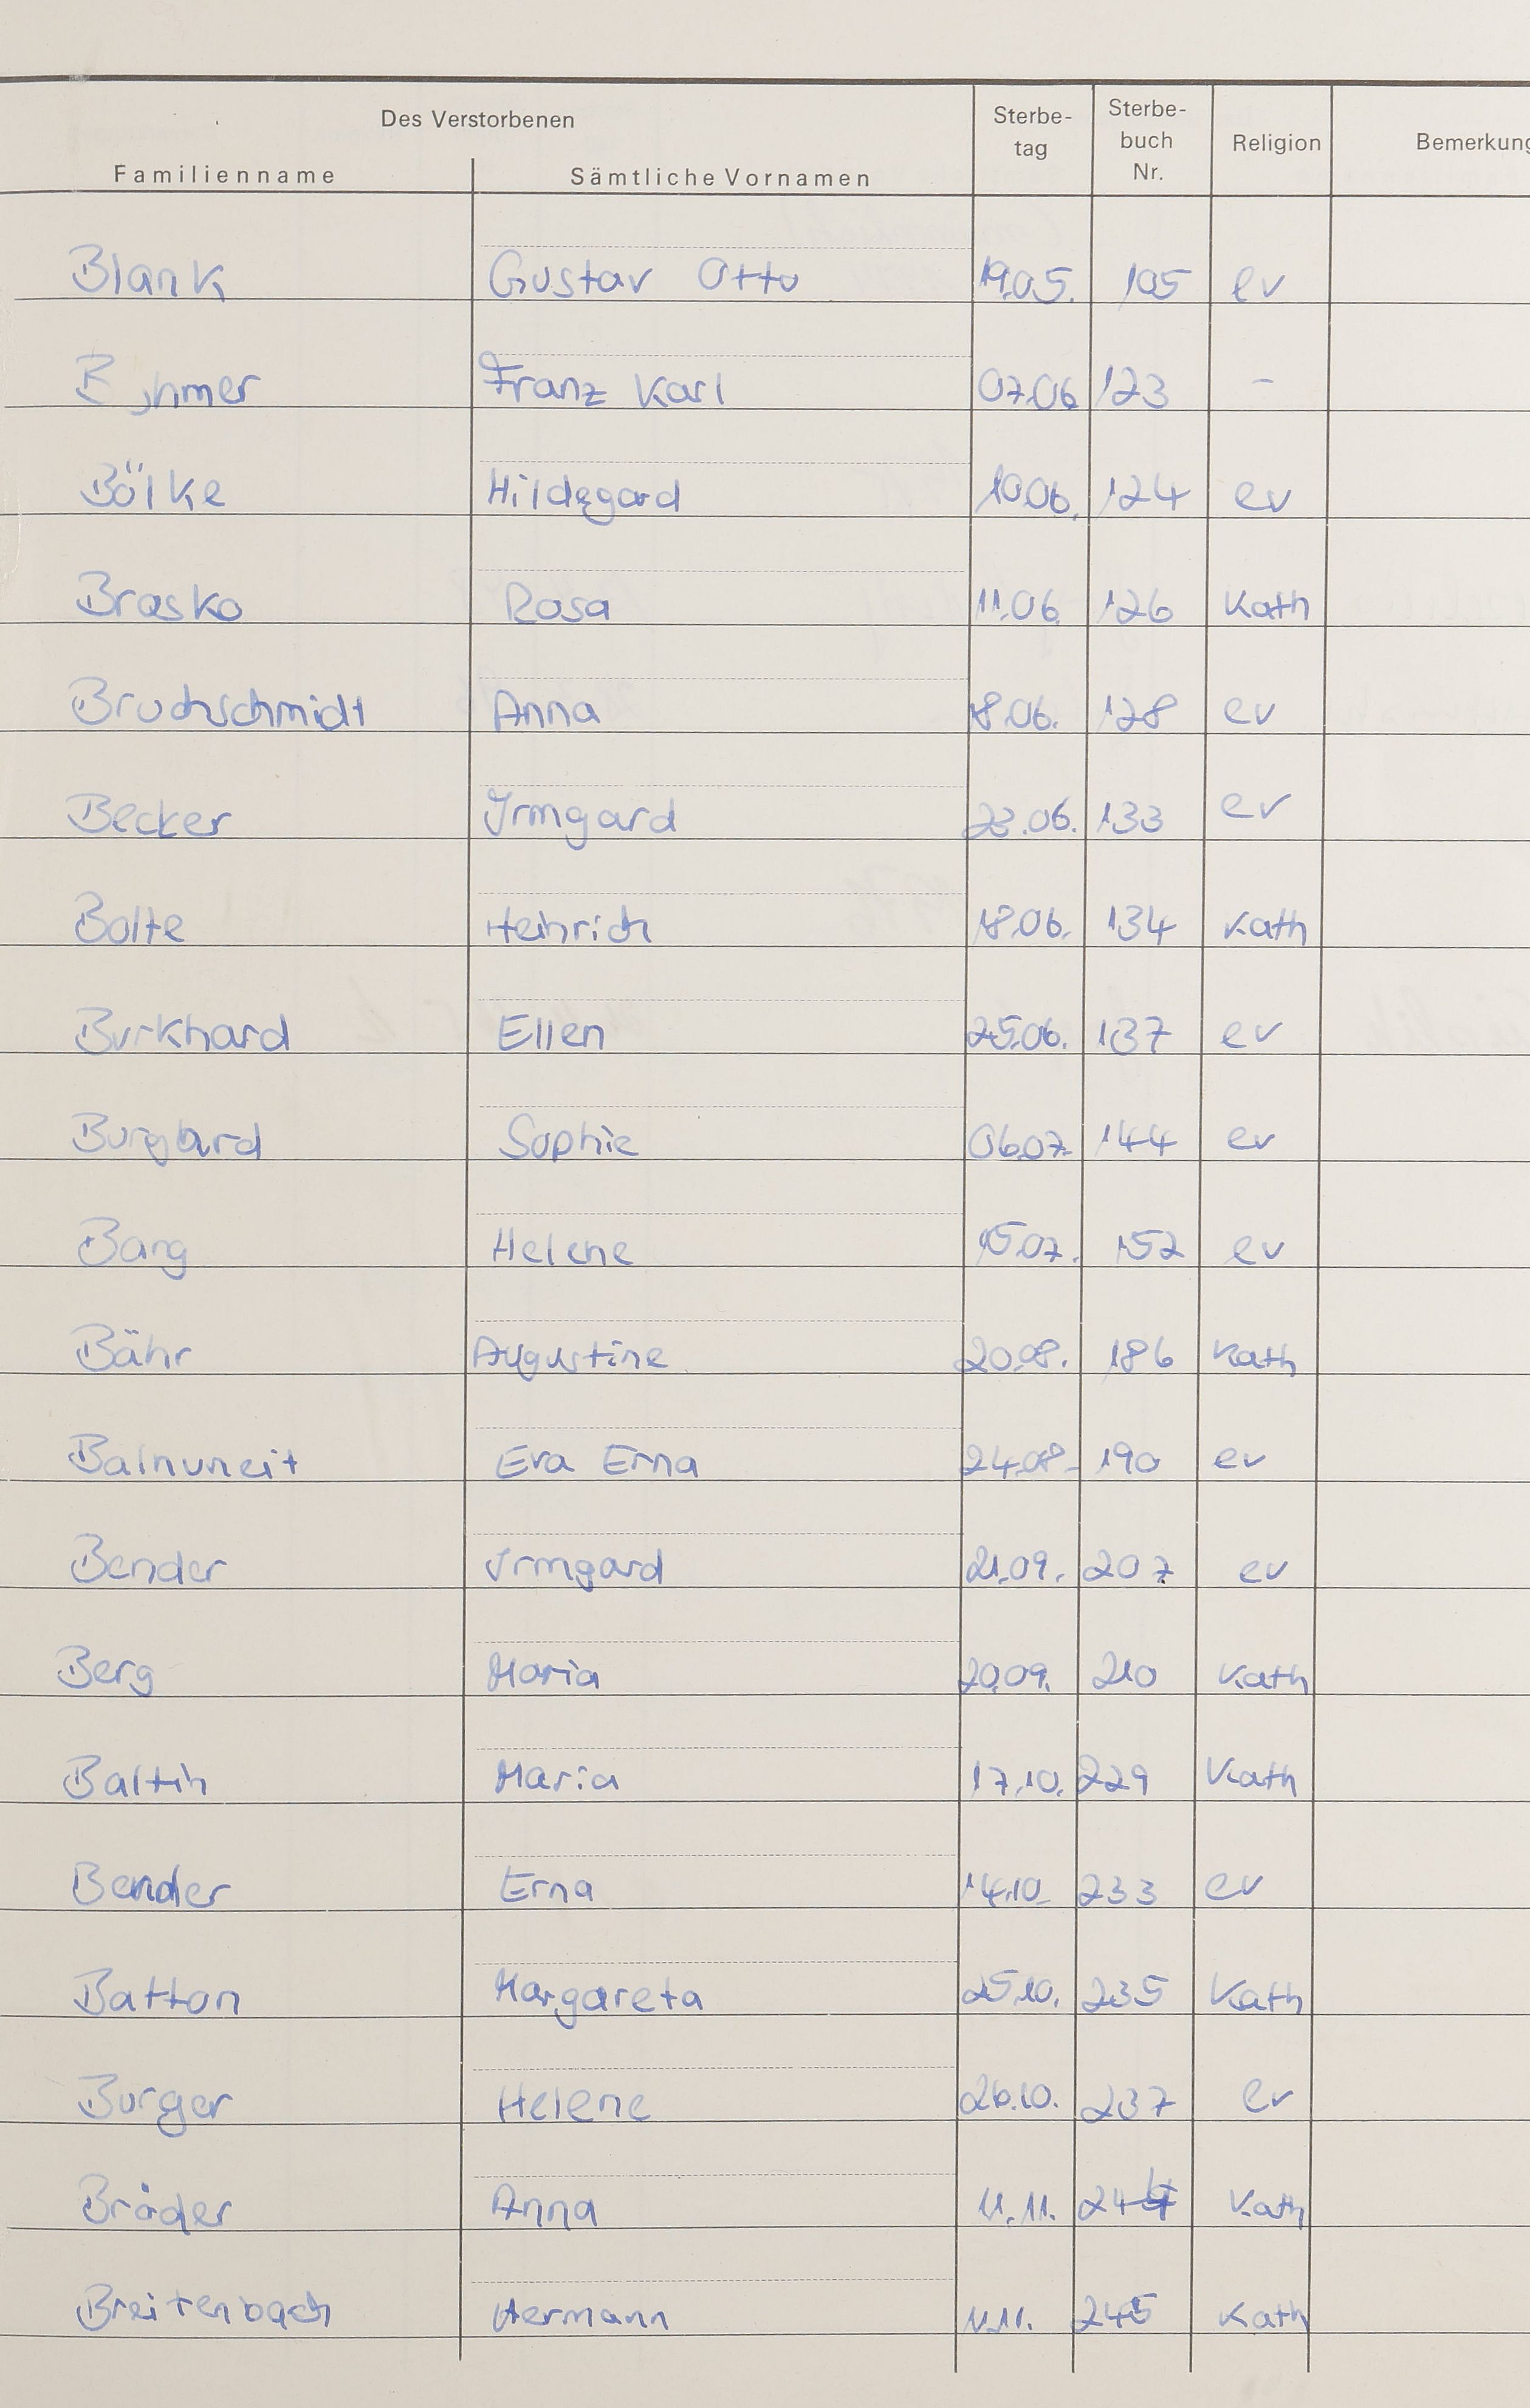 Des Verstorbenen
Familienname Sämtliche Vornamen Sterbe-tag Sterbe-buch Nr. Religion Bemerkung
Blank Gustav Otto 19.05. 105 ev
Franz Karl 07.06 123 -
Bölke Hildegard 10.06. 124 ev
Brasko Rosa 11.06. 126 Kath
Bruchschmidt Anna 18.06. 128 ev
Becker Irmgard 23.06. 133 ev
Bolte Heinrich 18.06. 134 Kath
Burkhard Ellen 25.06. 137 ev
Burghard Sophie 06.07. 144 ev
Barg Helene 15.07. 152 ev
Bähr Augustine 20.08. 186 Kath
Balnuneit Eva Erna 24.08. 190 ev
Bender Irmgard 21.09. 207 ev
Berg Maria 20.09. 210 Kath
Baltin Maria 17.10. 229 Kath
Bender Erna 14.10. 233 ev
Batton Margareta 25.10. 235 Kath
Burger Helene 26.10. 237 ev
Bräder Anna 11.11. 244 Kath
Breitenbach Hermann 11.11. 245 Kath